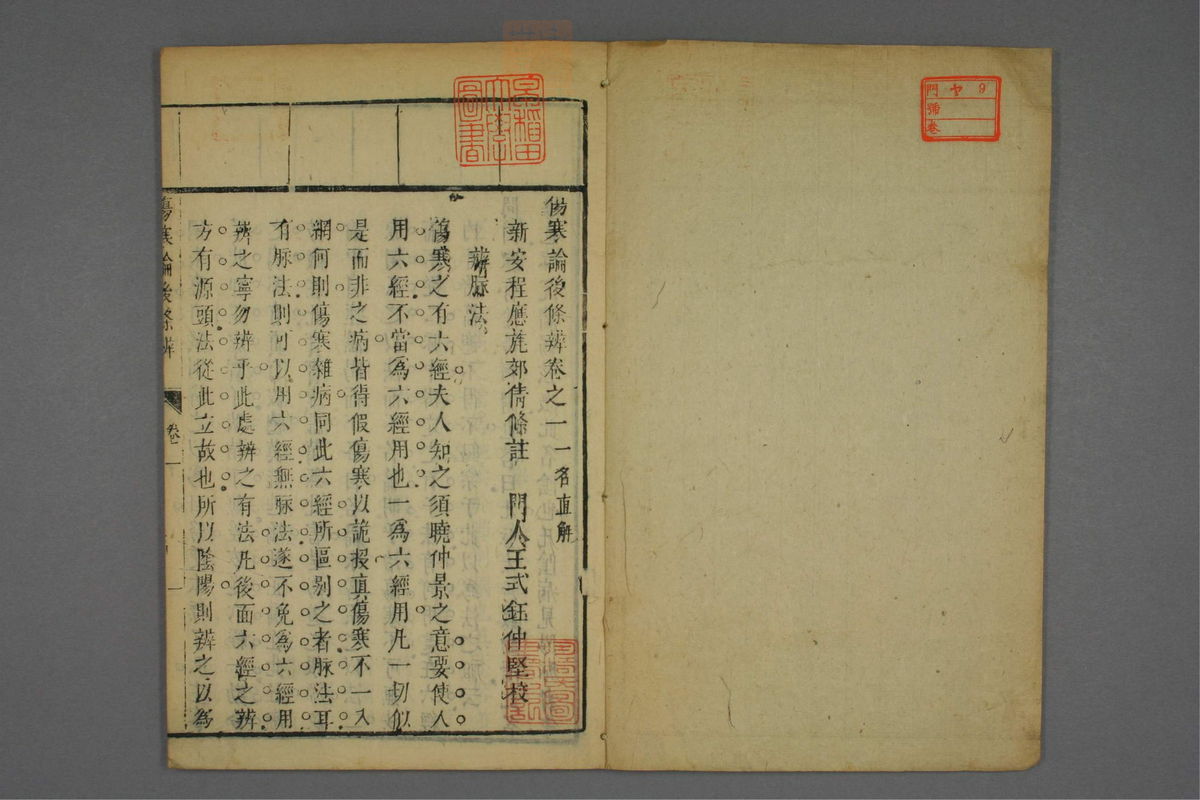 門 ヤ 9
號
卷
早稻田
大學
圖書
傷寒論後條辨卷之一 一名直解
新安程應旄郊倩條註 門人王式鈺仲堅校
辨脉法
傷寒之有六經夫人知之須曉仲景之意要使人
用六經不當為六經用也一為六經用凡一切似
是而非之病皆得假傷寒以詭投真傷寒不一入
網何則傷寒雜病同此六經所區别之者脉法耳
有脉法則可以用六經無脉法遂不免為六經用
辨之寧勿辨乎此處辨之有法凡後面六經之辨
方有源頭法從此立故也所以陰陽則辨之以為
傷寒論後條辨 卷一 一